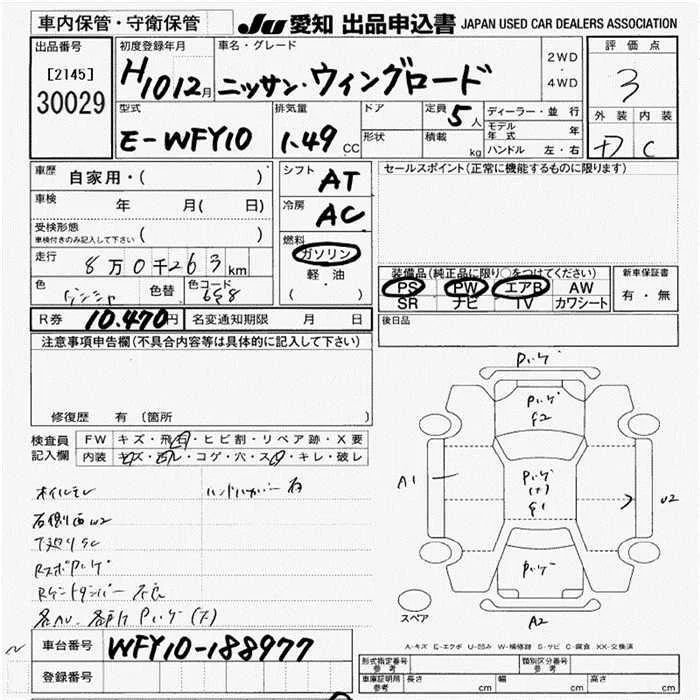 車内保管・守衛保管
JU 愛知 出品申込書 JAPAN USED CAR DEALERS ASSOCIATION
出品番号
[2145]
30029
初度登録年月
H10 12月
車名・グレード
ニッサン・ウィングロード
2WD
・
4WD
評価点
3
外装 内装
D C
型式
E-WFY10
排気量
1.49 CC
ドア
形状
定員 5人
積載 kg
ディーラー・並行
モデル年式 年
ハンドル 左・右
車歴 自家用・( )
車検 年 月( 日)
受検形態
車検付きのみ記入して下さい ( )
走行 8万0千263km
色 色替 色コード
R券 10.470円 名変通知期限 月 日
シフト AT
冷房 AC
燃料
ガソリン
軽・油
( )
セールスポイント(正常に機能するものに限ります)
装備品(純正品に限り○をつけてください)
PS PW エアB AW
SR ナビ TV カワシート
新車保証書
有・無
後日品
注意事項申告欄(不具合内容等は具体的に記入して下さい)
修復歴 有 〔箇所
検査員
記入欄
FW キズ・飛石・ヒビ割・リペア跡・X要
内装 キズ・汚レ・コゲ・穴・スレ・キレ・破レ
オイルモレ
右側面W2
下廻りSC
車台番号 WFY10-188977
登録番号
A1
A2
スペア
A-キズ E-エクボ U-凹み W-補修跡 S-サビ C-腐食 XX-交換済
形式指定番号
参考
類別区分番号
参考
車庫証明用
参考
長さ cm 幅 cm 高さ cm